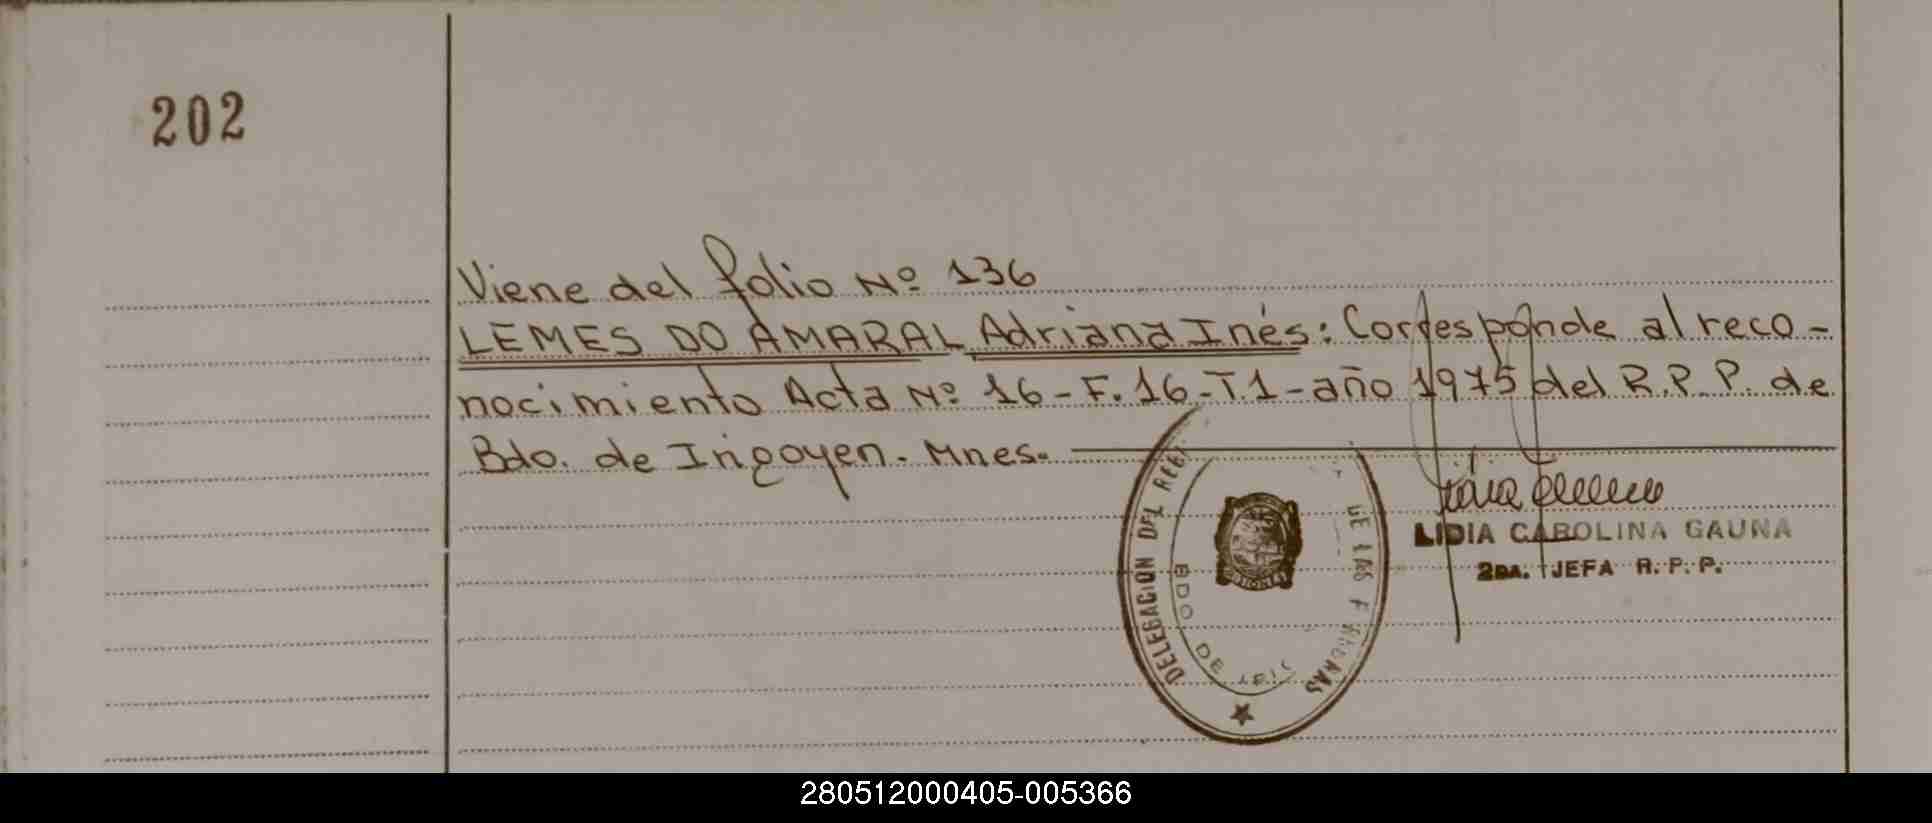 202
Viene del folio Nº 136
LEMES DO AMARAL Adriana Inés: Corresponde al reco-
nocimiento Acta Nº 16 - F. 16 - T. 1 - año 1975 del R.P.P. de
Bdo. de Irigoyen. Mnes.
DELEGACION DEL REG DE LAS PERSONAS
BDO DE
LIDIA CAROLINA GAUNA
2DA. JEFA R. P. P.
280512000405-005366